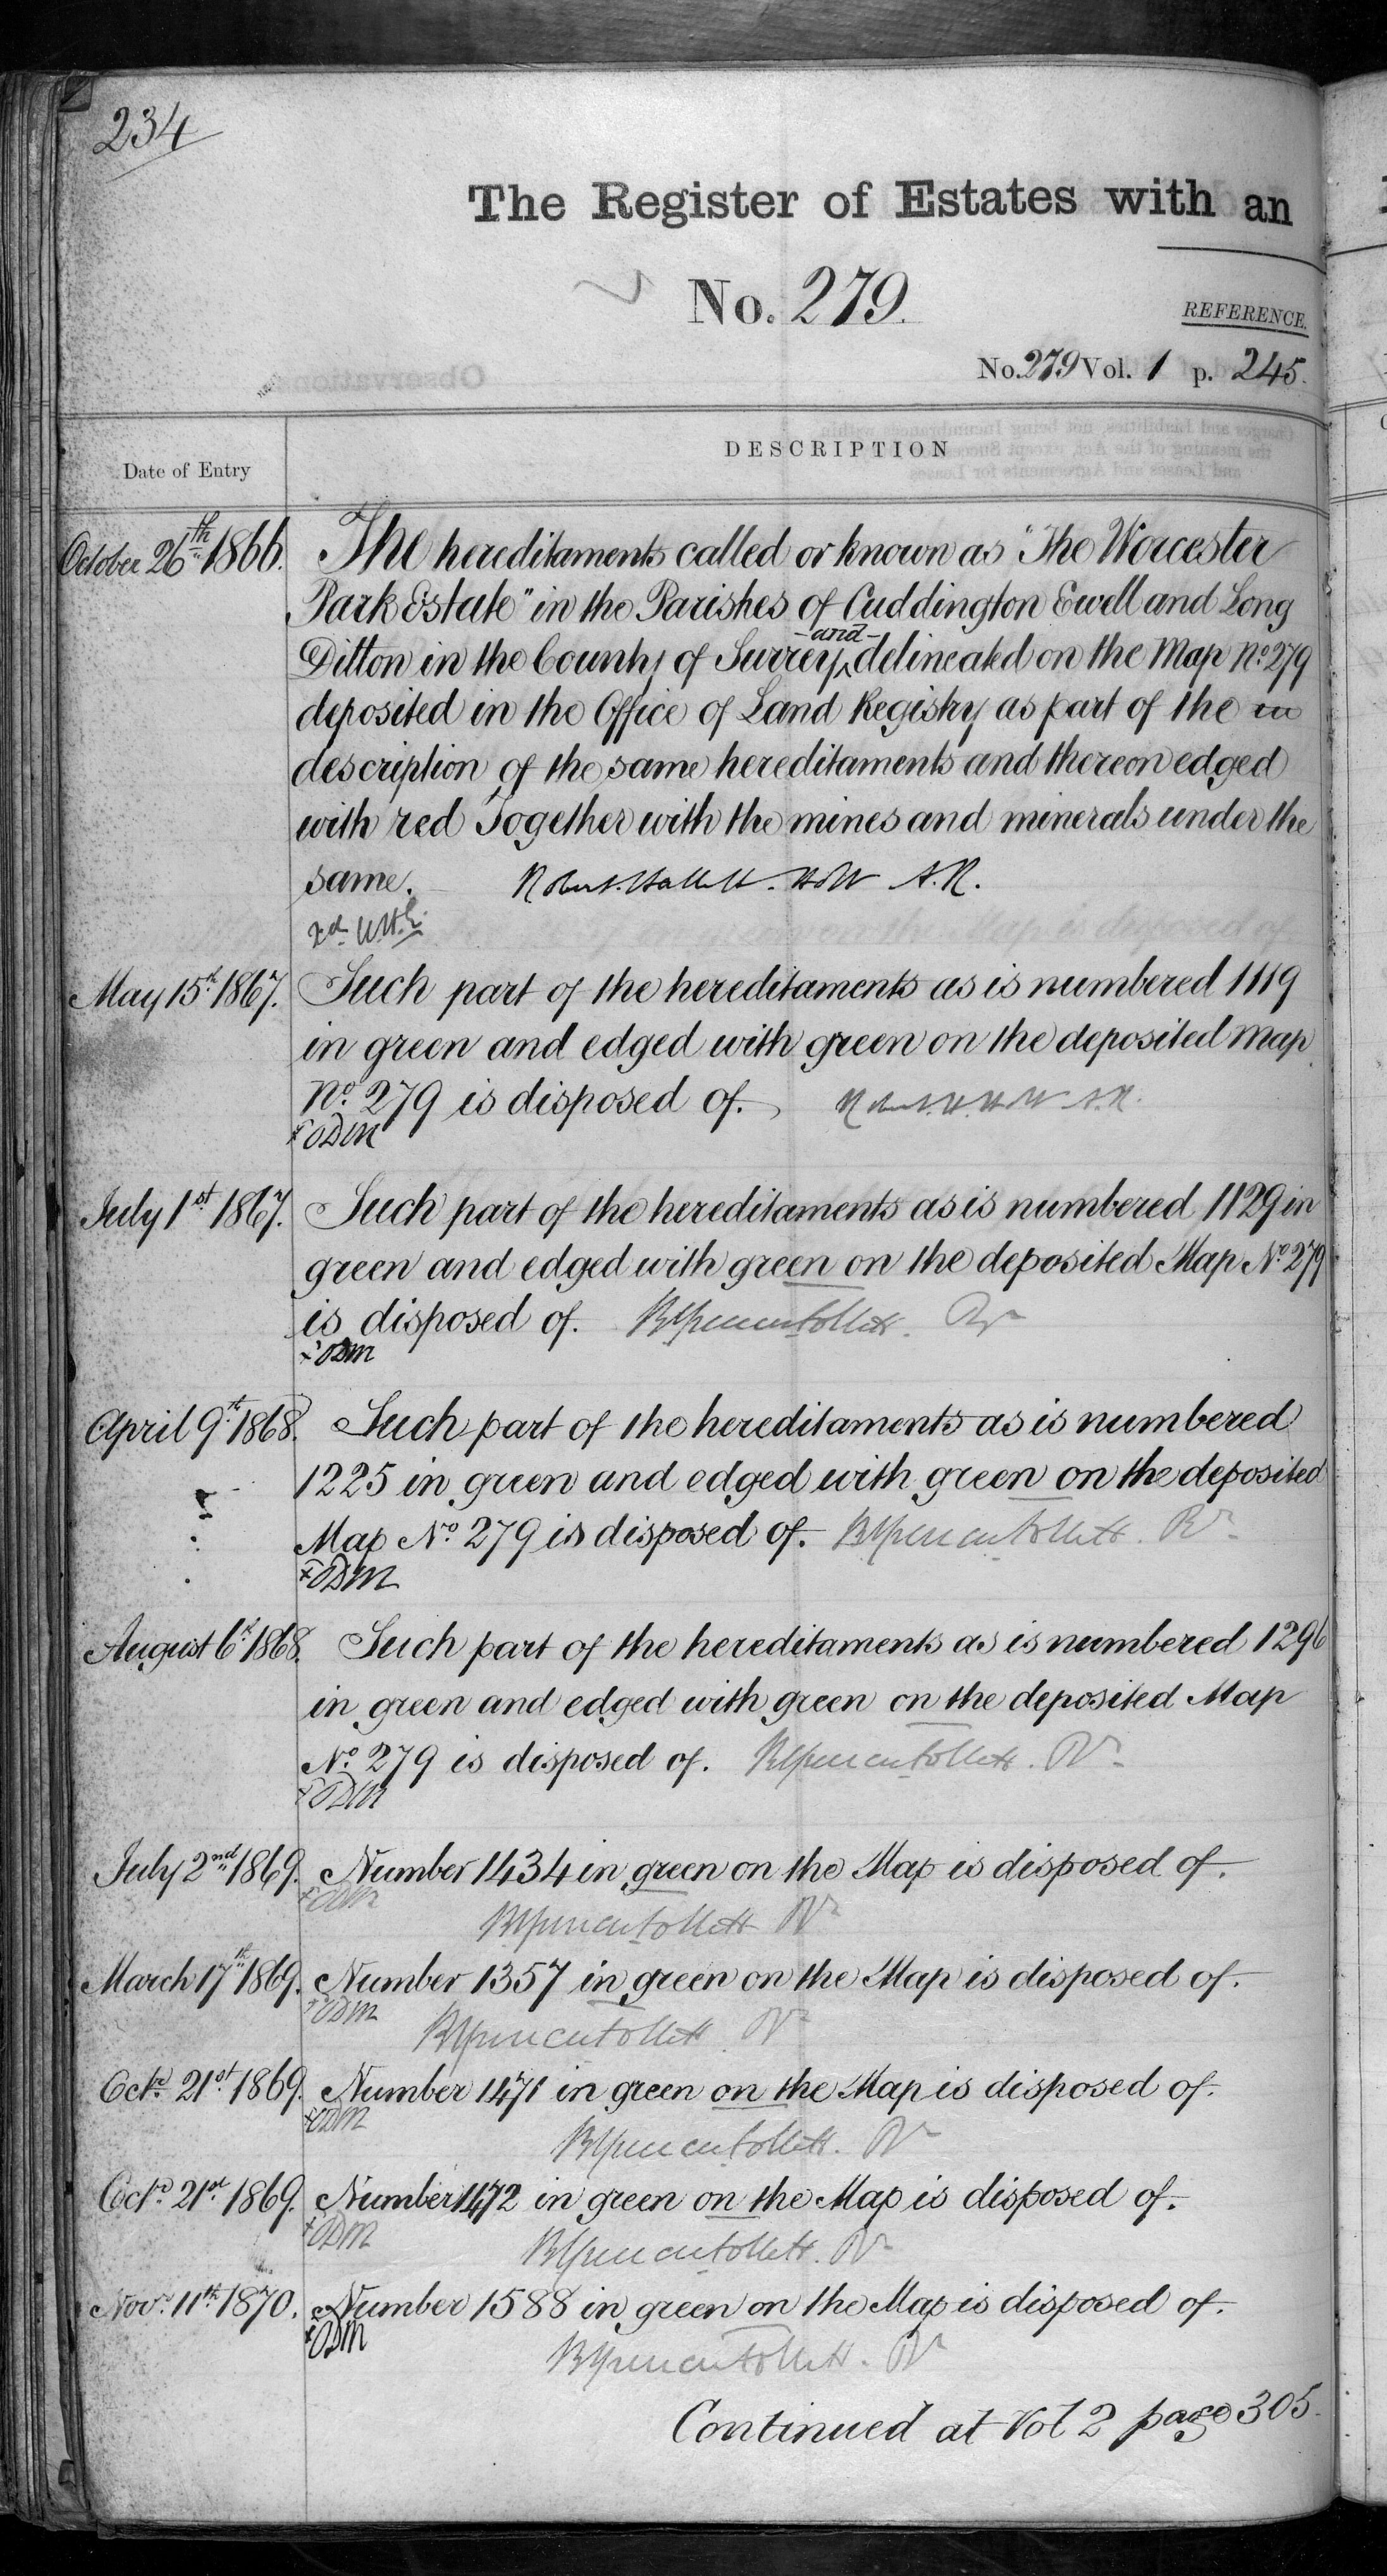 234
The Register of Estates with an
No. 279.
REFERENCE.
No. 279 Vol. 1 p. 245.
Date of Entry
DESCRIPTION
October 26th 1866. The hereditaments called or known as "The Worcester
Park Estate" in the Parishes of Cuddington Ewell and Long
-and-
Ditton in the County of Surrey ‸ delineated on the Map No 279
deposited in the Office of Land Registry as part of the in
description of the same hereditaments and thereon edged
with red Together with the mines and minerals under the
same. Robert Hallett Holt A.R.
May 15th 1867. Such part of the hereditaments as is numbered 1119
in green and edged with green on the deposited Map
No. 279 is disposed of. A.R.
x ODM
July 1st 1867. Such part of the hereditaments as is numbered 1129 in
green and edged with green on the deposited Map No. 279
is disposed of. Rr
x ODM
April 9th 1868. Such part of the hereditaments as is numbered
1225 in green and edged with green on the deposited
Map No 279 is disposed of. Rr
x ODM
August 6th 1868. Such part of the hereditaments as is numbered 1296
in green and edged with green on the deposited Map
No. 279 is disposed of. Rr
x ODM
July 2nd 1869. Number 1434 in green on the Map is disposed of.
x ODM
Rr
March 17th 1869. Number 1357 in green on the Map is disposed of.
x ODM
Rr
Octr. 21st 1869. Number 1471 in green on the Map is disposed of.
x ODM
Rr
Octr. 21st 1869. Number 1472 in green on the Map is disposed of.
x ODM
Rr
Novr. 11th 1870. Number 1588 in green on the Map is disposed of.
x ODM
Rr
Continued at Vol 2 page 305.